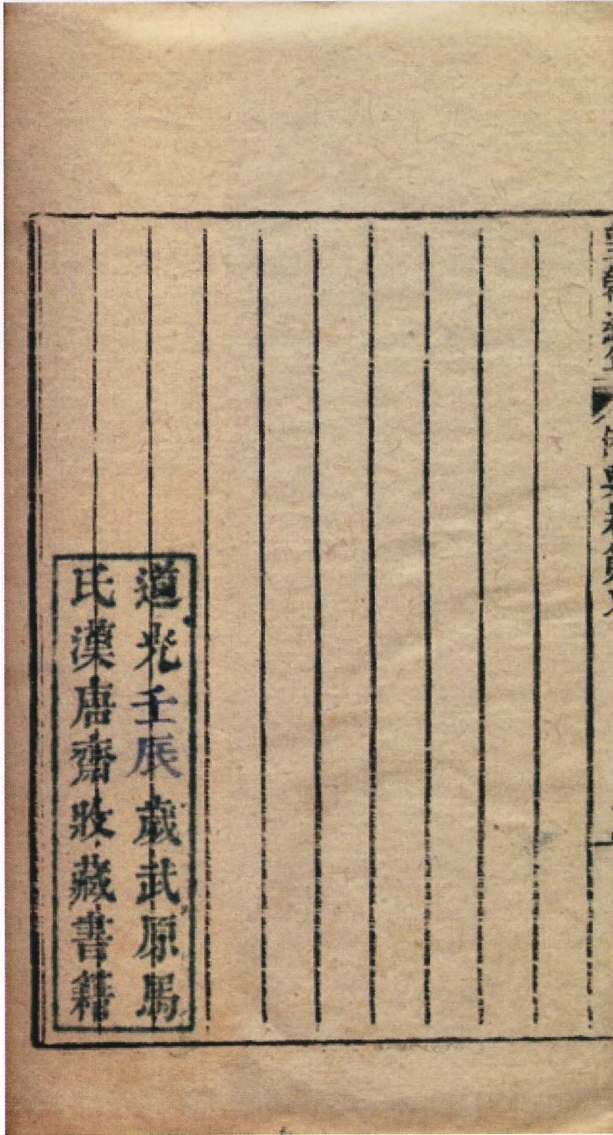 道光壬辰歲武原馬
氏漢唐齋收藏書籍